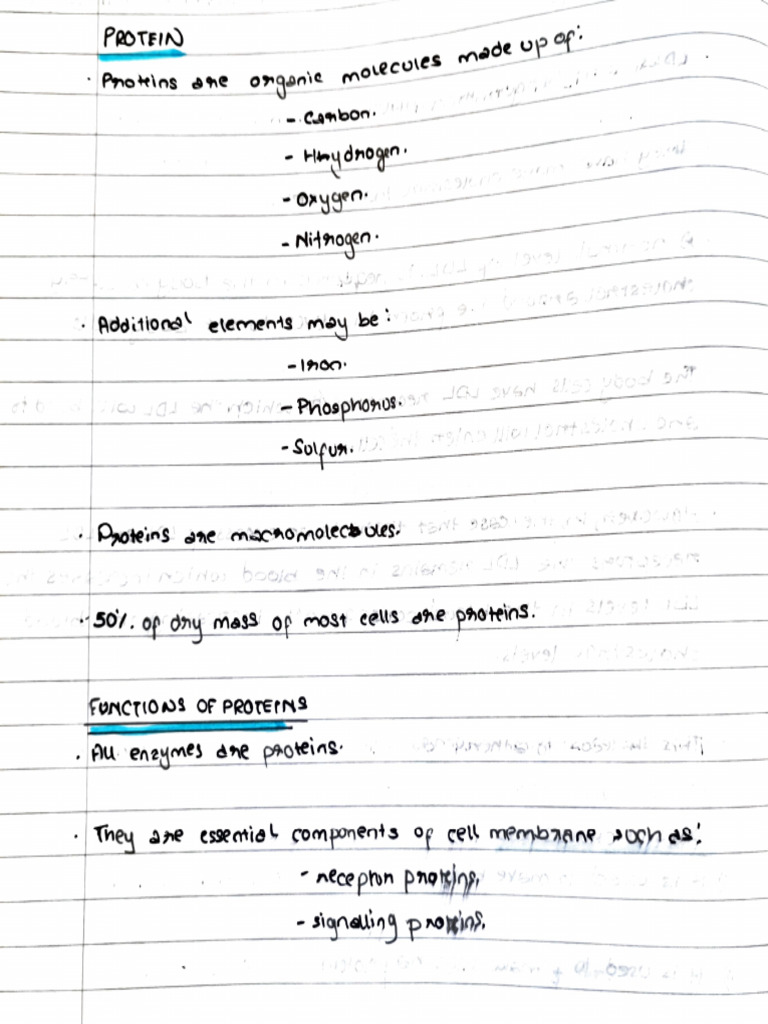 PROTEIN
· Proteins are organic molecules made up of:
- Carbon.
- Hydrogen.
- Oxygen.
- Nitrogen.
· Additional elements may be:
- Iron.
- Phosphorus.
- Sulfur.
· Proteins are macromolecules.
· 50% of dry mass of most cells are proteins.
FUNCTIONS OF PROTEINS
· All enzymes are proteins.
· They are essential components of cell membrane such as:
- receptor proteins,
- signalling proteins.